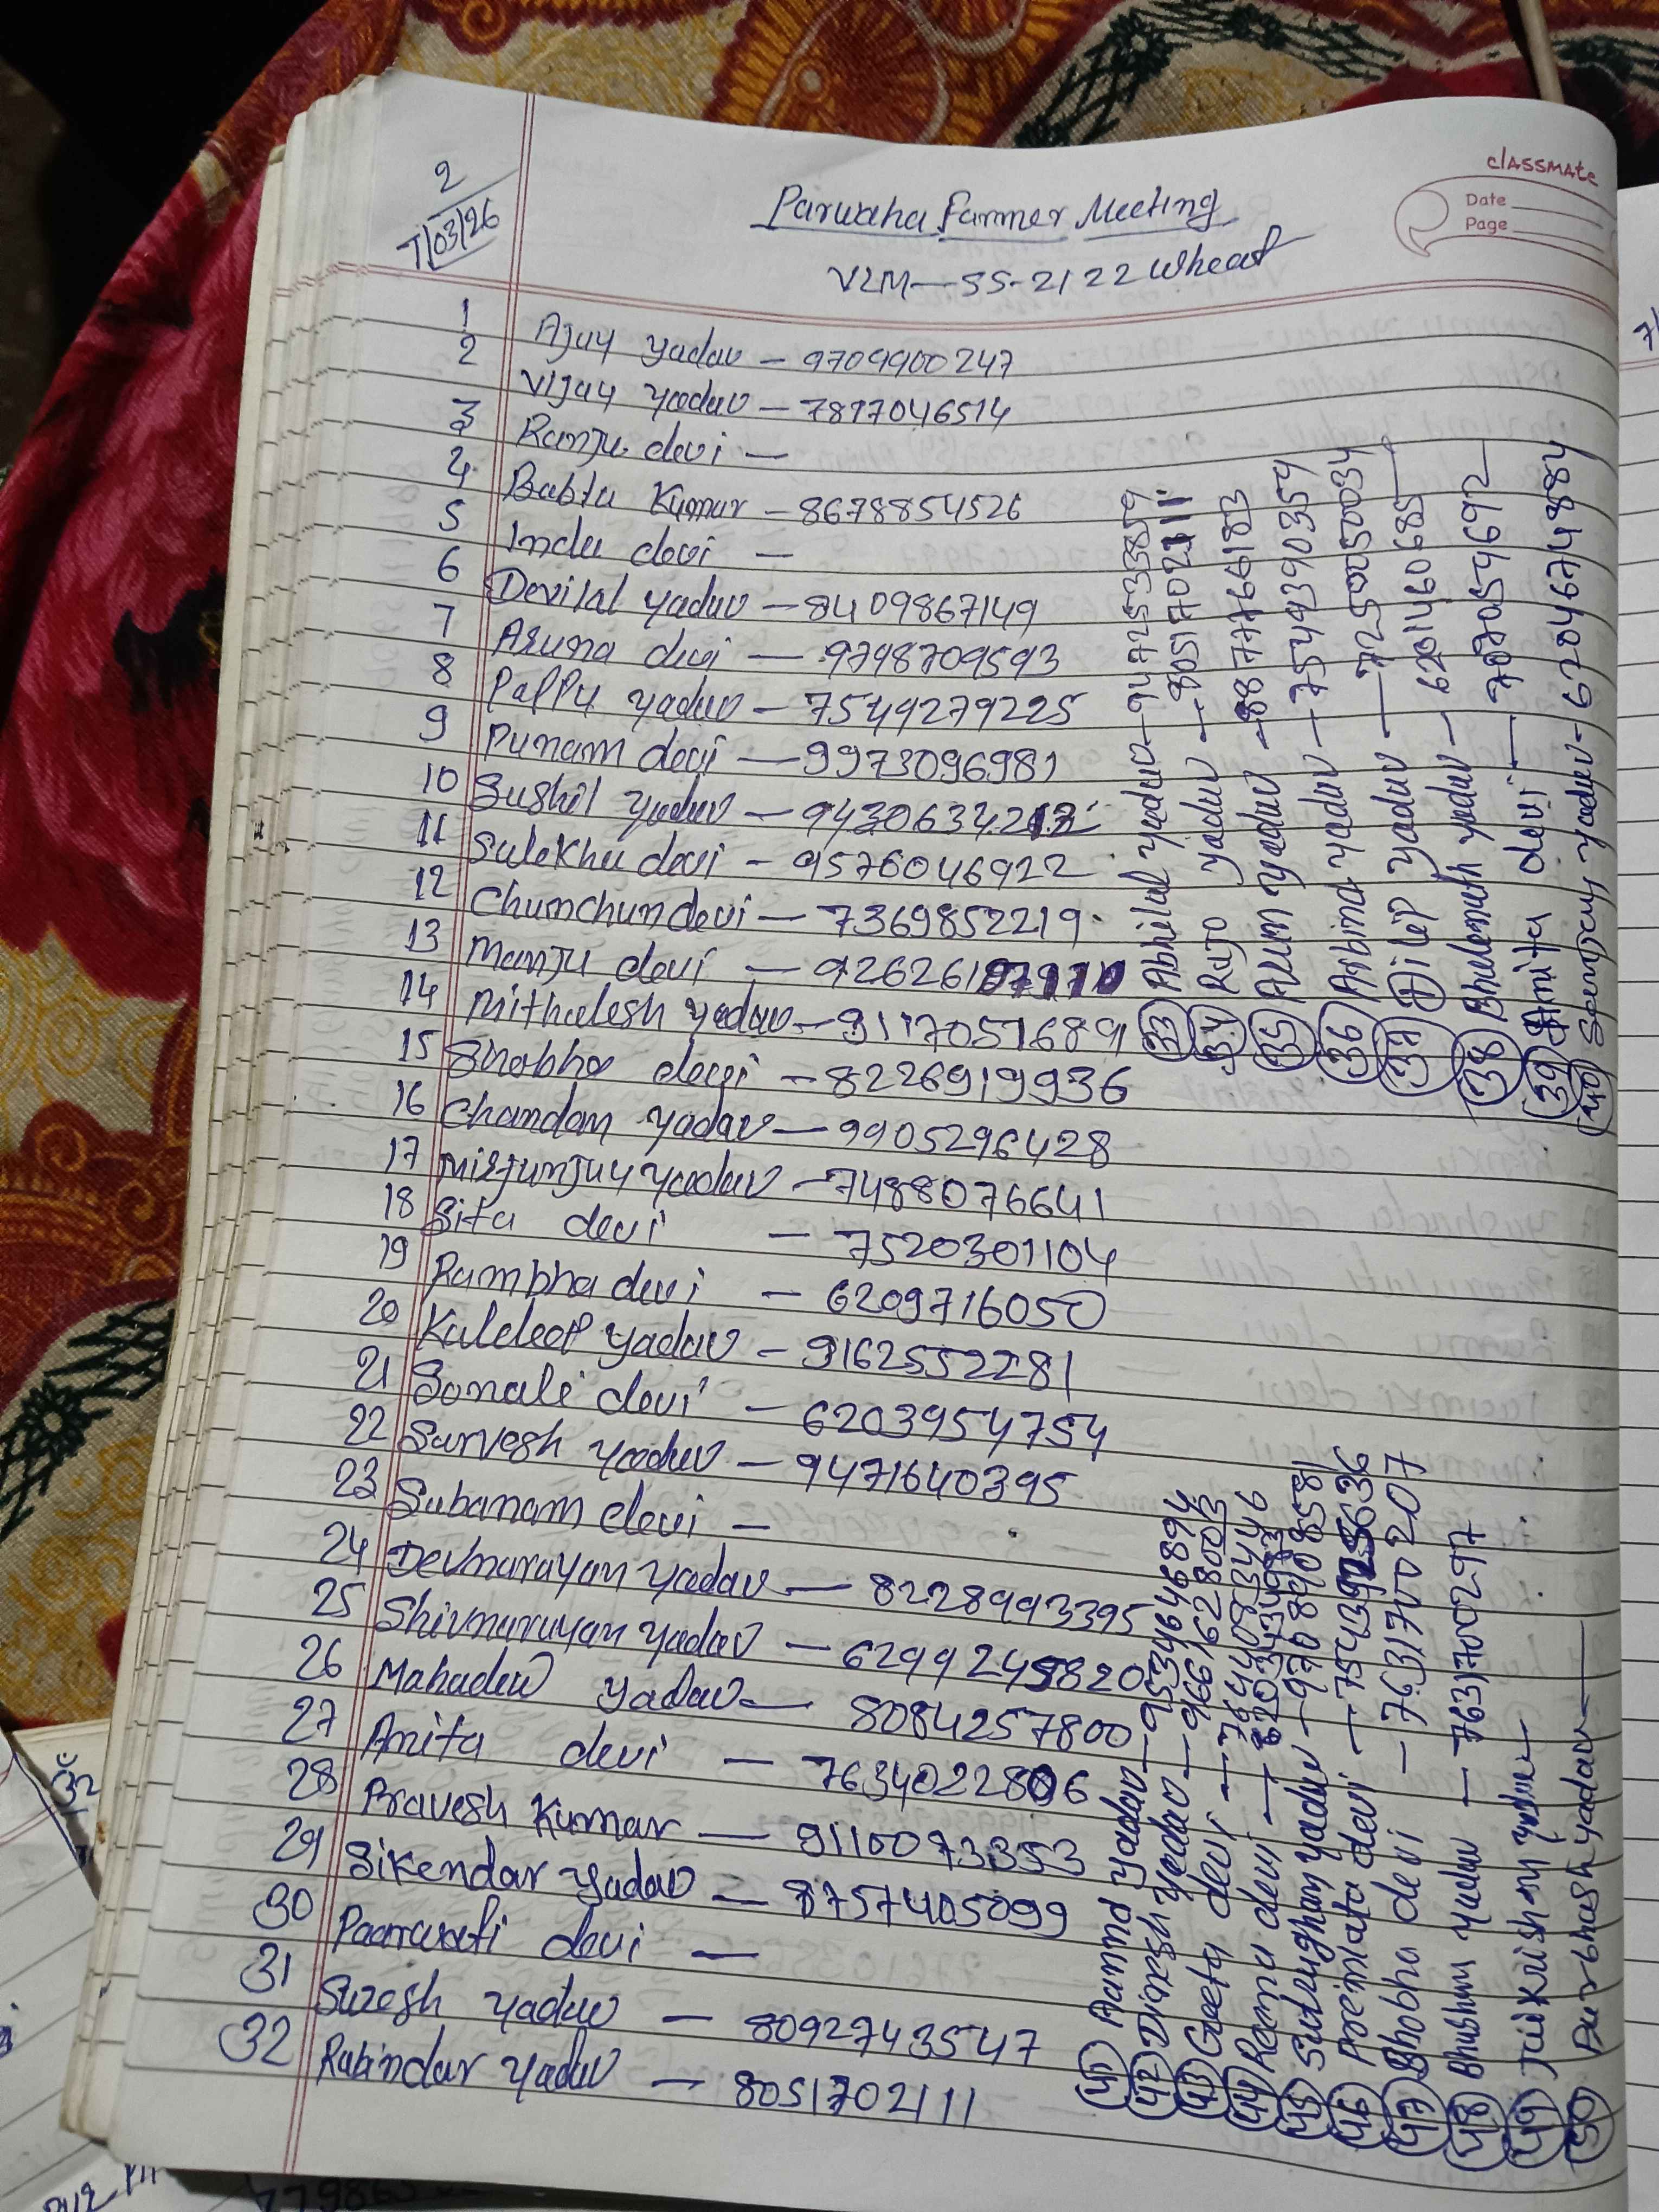 classmate
Date
Page
2
7/03/26
Parwaha Farmer Meeting
VLM—SS-2122 Wheat
1 Ajay yadav — 9709900247
2 Vijay yadav — 7877046514
3 Ranju devi —
4 Bablu Kumar — 8678854526
5 Indu devi —
6 Devilal yadav — 8409867149
7 Aruna devi — 9798709593
8 Pappu yadav — 7549279225
9 Punam devi — 9973096981
10 Sushil yadav —
11 Sulekha devi — 9576046922
12 Chumchun devi — 7369852219
13 Manju devi —
14 Mithalesh yadav — 9117051689
15 Shobha devi — 8226919936
16 Chandan yadav — 9905296428
17 Mirtunjay yadav — 7488076641
18 Sita devi — 7520301104
19 Rambha devi — 6209716050
20 Kuldeep yadav — 9162552281
21 Sonali devi — 6203954754
22 Sarvesh yadav — 9471640395
23 Subanam devi —
24 Devnarayan yadav — 8228993395
25 Shivnarayan yadav — 6299245820
26 Mahadev yadav — 8084257800
27 Anita devi — 7634022806
28 Pravesh Kumar — 9110073353
29 Sikendar yadav — 8757405099
30 Paarwati devi —
31 Suresh yadav — 8092743547
32 Rabindar yadav — 8051702111
33 Abhilal yadav — 9472533859
34 Rajo yadav — 8051702111
35 Arun yadav — 8877766183
36 Arbind yadav — 7549390354
37 Dilip yadav — 7250050034
38 Bholenath yadav — 6201460685
39 Amita devi — 7070549692
40 yadav — 6204674884
41 yadav — 9534646894
42 Dinesh yadav — 9661628003
43 Geeta devi — 7644083446
44 Rama devi — 6203439833
45 Sudrughan yadav — 9708908581
46 Premlata devi —
47 Shobha devi — 7631700207
48 Bhushan yadav — 7631700297
49 Jaikrishna yadav —
50 yadav —